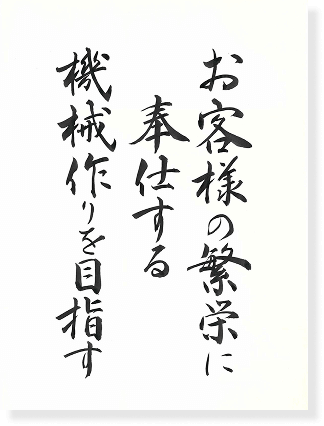 お客様の繁栄に
奉仕する
機械作りを目指す